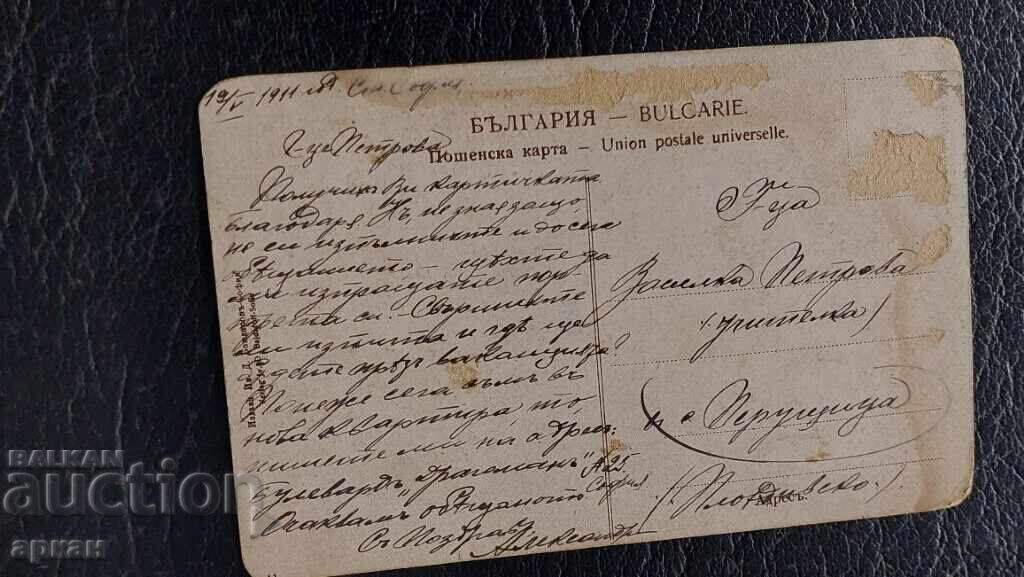 19/V 1911 г. София.
БЪЛГАРИЯ — BULGARIE.
Пошенска карта — Union postale universelle.
Г-це Петрова
Получихъ Ви картичката
благодаря. Нъ, не зная защо
не си изпълнихте и досега
обѣщанието — щѣхте да
ми изпращате пор-
трета си. Свършихте
ли изпита и гдѣ ще
бѫдете прѣзъ ваканцията?
Понеже сега съмъ въ
нова квартира, то
пишете ми на адрес:
Булевардъ "Драгоманъ" № 25
София
Очаквамъ обѣщаното
Съ Поздрав
Александр
Г-ца
Василка Петрова
(учителка)
с. Перущица
(Пловдивско.)
Адресъ:
BALKAN
AUCTION
аркан